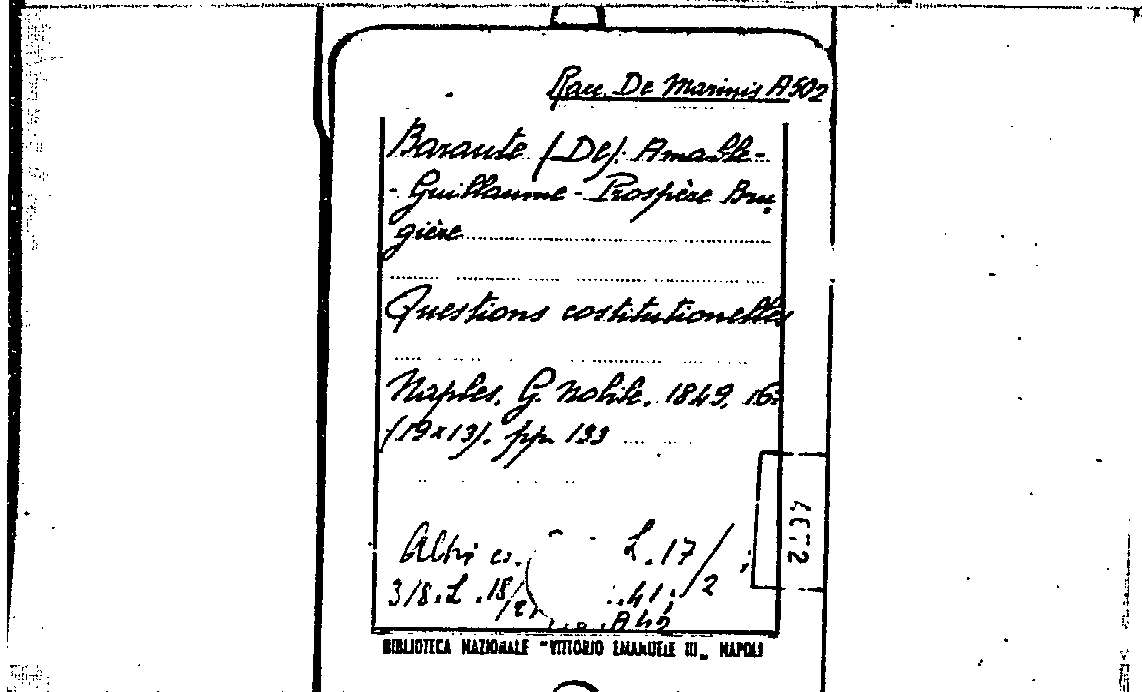 Racc. De Marinis A502
Barante (De). Amable-
- Guillaume - Prospère Bru
gière
Questions costitutionelles
Naples, G. Nobile. 1849. 16°
(19x13). pp. 133
Altri es. L.17/
318.L.18/ .41./2
A44
BIBLIOTECA NAZIONALE "VITTORIO EMANUELE III„ NAPOLI